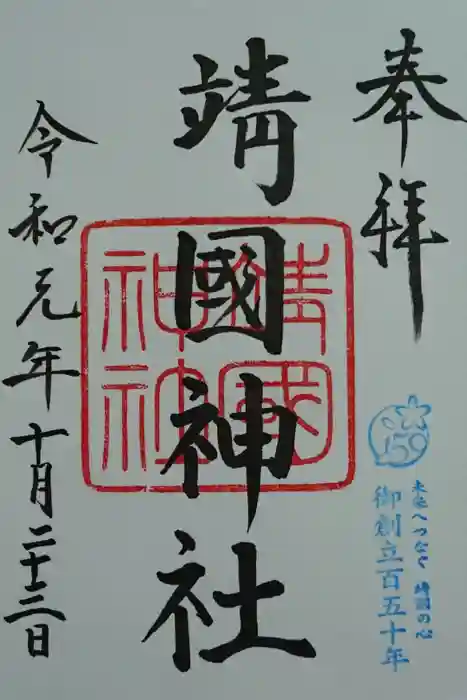 奉拝
150
未来へつなぐ 靖国の心
御創立百五十年
靖國神社
靖國
神社
令和元年十月二十三日